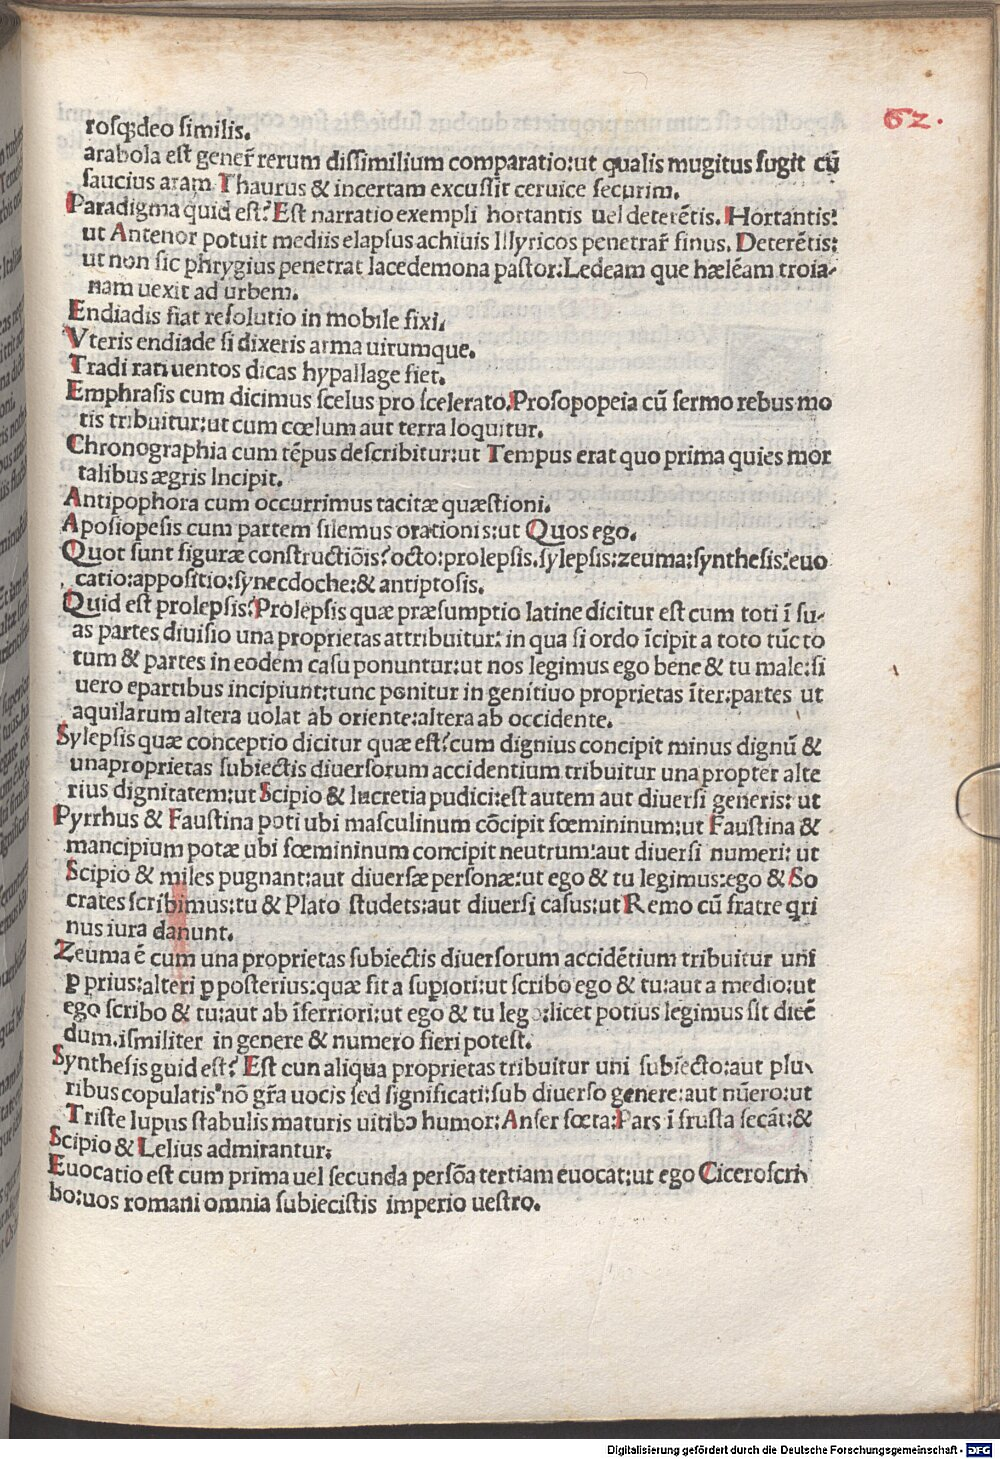 62.
rosq; deo similis.
arabola est gener̄ rerum dissimilium comparatio:ut qualis mugitus fugit cū
saucius aram Thaurus & incertam excussit ceruice securim.
Paradigma quid est? Est narratio exempli hortantis uel deterētis. Hortantis:
ut Antenor potuit mediis elapsus achiuis Illyricos penetrar̄ sinus. Deterētis:
ut non sic phrygius penetrat lacedemona pastor: Ledeam que hælēam troia-
nam uexit ad urbem.
Endiadis fiat resolutio in mobile fixi.
Vteris endiade si dixeris arma uirumque.
Tradi rati uentos dicas hypallage fiet.
Emphrasis cum dicimus scelus pro scelerato. Prosopopeia cū sermo rebus mo
tis tribuitur:ut cum cœlum aut terra loquitur.
Chronographia cum tēpus describitur:ut Tempus erat quo prima quies mor
talibus ægris Incipit.
Antipophora cum occurrimus tacitæ quæstioni.
Aposiopesis cum partem silemus orationis:ut Quos ego.
Quot sunt figuræ constructiōis? octo:prolepsis.sylepsis:zeuma:synthesis:euo
catio:appositio:synecdoche:& antiptosis.
Quid est prolepsis? Prolepsis quæ præsumptio latine dicitur est cum toti ī su-
as partes diuisio una proprietas attribuitur: in qua si ordo īcipit a toto tūc to
tum & partes in eodem casu ponuntur:ut nos legimus ego bene & tu male:si
uero e partibus incipiunt:tunc ponitur in genitiuo proprietas īter:partes ut
aquilarum altera uolat ab oriente:altera ab occidente.
Sylepsis quæ conceptio dicitur quæ est? cum dignius concipit minus dignū &
unaproprietas subiectis diuersorum accidentium tribuitur una propter alte
rius dignitatem:ut Scipio & lucretia pudici:est autem aut diuersi generis: ut
Pyrrhus & Faustina poti ubi masculinum cōcipit fœmininum:ut Faustina &
mancipium potæ ubi fœmininum concipit neutrum:aut diuersi numeri: ut
Scipio & miles pugnant:aut diuersæ personæ:ut ego & tu legimus:ego & So
crates scribimus:tu & Plato studets:aut diuersi casus:ut Remo cū fratre qri
nus iura danunt.
Zeuma ē cum una proprietas subiectis diuersorum accidētium tribuitur uni
ꝑ prius:alteri ꝑ posterius:quæ fit a supiori:ut scribo ego & tu:aut a medio:ut
ego scribo & tu:aut ab īferriori:ut ego & tu lego:licet potius legimus sit dicē
dum.ismiliter in genere & numero fieri potest.
Synthesis guid est? Est cun aliqua proprietas tribuitur uni subiecto:aut plu
ribus copulatis nō gr̄a uocis sed significati:sub diuerso genere:aut nūero:ut
Triste lupus stabulis maturis uitibo humor: Anser fœta: Pars ī frusta secāt:&
Scipio & Lelius admirantur:
Euocatio est cum prima uel secunda persōa tertiam euocat:ut ego Cicero scri
bo:uos romani omnia subiecistis imperio uestro.
Digitalisierung gefördert durch die Deutsche Forschungsgemeinschaft - DFG